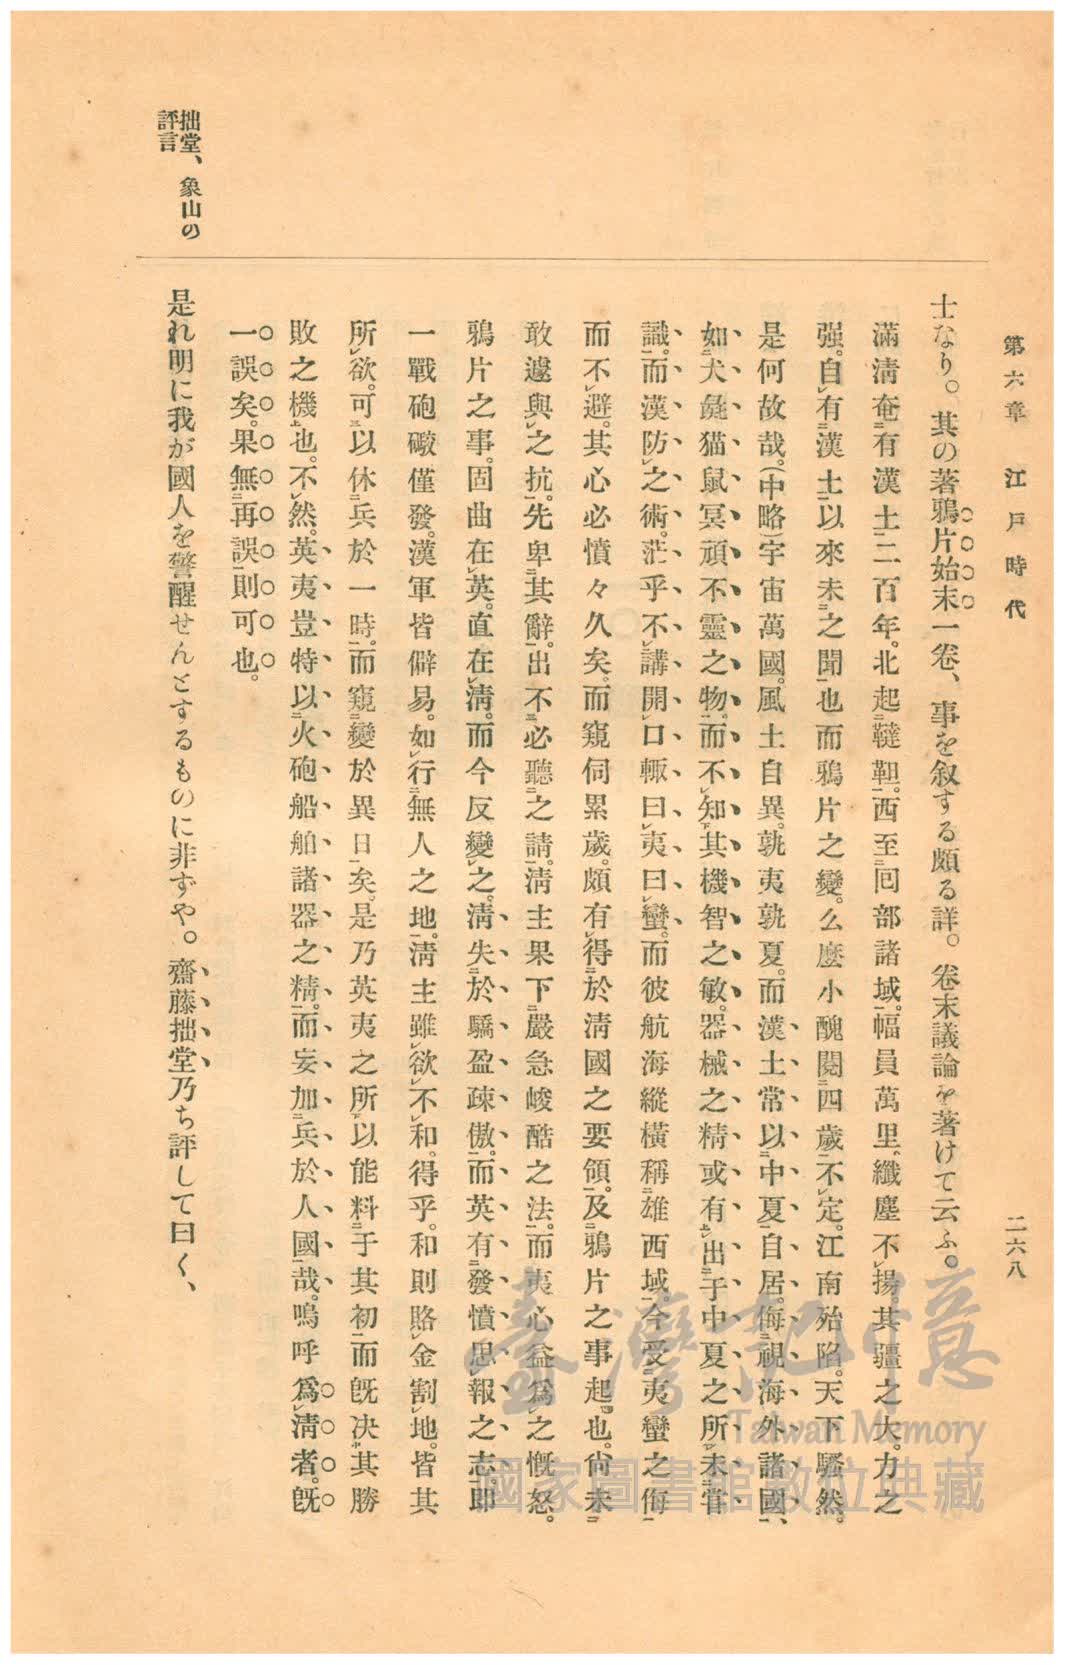 第六章 江戸時代
二六八
士なり。其の著鴉片始末一卷、事を叙する頗る詳。卷末議論を著けて云ふ。
滿淸奄有漢土二百年。北起韃靼。西至回部諸域。幅員萬里。纖塵不揚。其疆之大。力之
强。自有漢土以來未之聞也而鴉片之變。么麼小醜閱四歲不定。江南殆陷。天下騷然。
是何故哉。(中略)宇宙萬國。風土自異。孰夷孰夏。而漢土常以中夏自居。侮視海外諸國、
如犬彘猫鼠冥頑不靈之物。而不知其機智之敏。器械之精或有出于中夏之所未嘗
識。而漢防之術。茫乎不講開口輙曰夷曰蠻。而彼航海縱橫稱雄西域。今受夷蠻之侮
而不避。其心必憤々久矣。而窺伺累歲。頗有得於淸國之要領。及鴉片之事起也。尙未
敢遽與之抗。先卑其辭。出不必聽之請。淸主果下嚴急峻酷之法。而夷心益爲之慨怒。
鴉片之事。固曲在英。直在淸。而今反變之。淸失於驕盈疎傲。而英有發憤思報之志。卽
一戰砲礮僅發。漢軍皆僻易。如行無人之地。淸主雖欲不和。得乎。和則賂金割地。皆其
所欲。可以休兵於一時。而窺變於異日矣。是乃英夷之所以能料于其初而旣决其勝
敗之機也。不然。英夷豈特以火砲船舶諸器之精。而妄加兵於人國哉。嗚呼爲淸者。旣
一誤矣。果無再誤則可也。
拙堂、象山の
評言
是れ明に我が國人を警醒せんとするものに非ずや。齋藤拙堂乃ち評して曰く、
臺灣記憶
Taiwan Memory
國家圖書館數位典藏